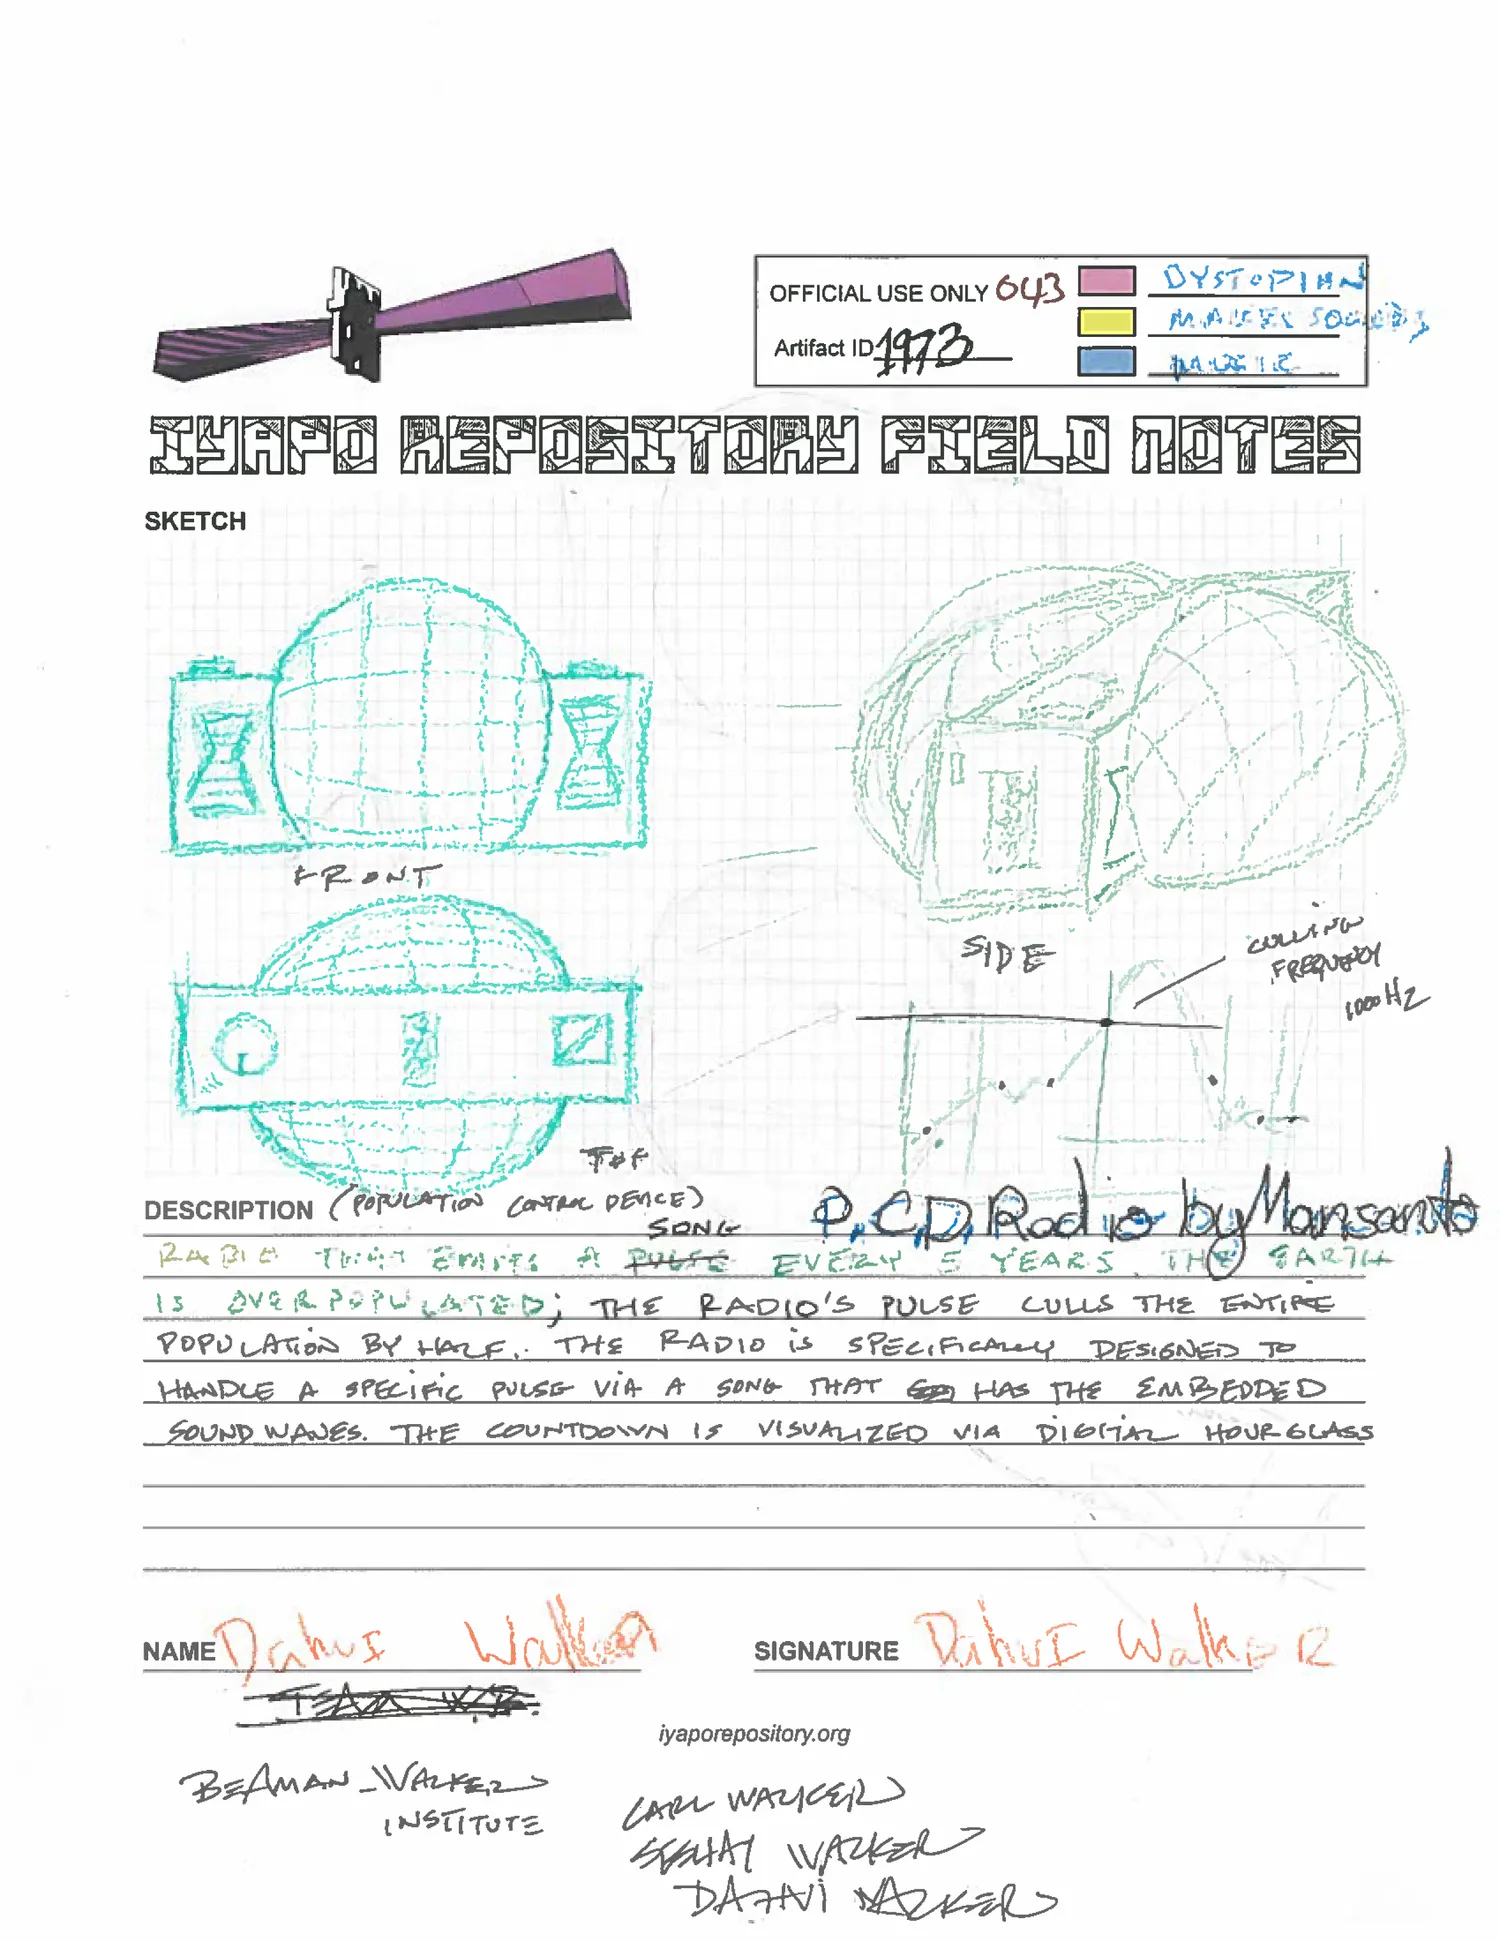 OFFICIAL USE ONLY 643
DYSTOPIAN
MAKES SOUNDS
Artifact ID 1973
MUSIC
IYAPO REPOSITORY FIELD NOTES
SKETCH
FRONT
SIDE
CULLING
FREQUENCY
1000 HZ
TOP
DESCRIPTION (POPULATION CONTROL DEVICE)
P.C.D. Radio by Mansanto
SONG
RADIO THAT EMITS A PULSE EVERY 5 YEARS THE EARTH
IS OVERPOPULATED; THE RADIO'S PULSE CULLS THE ENTIRE
POPULATION BY HALF. THE RADIO IS SPECIFICALLY DESIGNED TO
HANDLE A SPECIFIC PULSE VIA A SONG THAT HAS THE EMBEDDED
SOUND WAVES. THE COUNTDOWN IS VISUALIZED VIA DIGITAL HOURGLASS
NAME Dahvi Walker
SIGNATURE Dahvi WalkER
TEAM W.B.
iyaporepository.org
BEAMAN-WALKER
INSTITUTE
CARL WALKER
WALKER
DAHVI WALKER